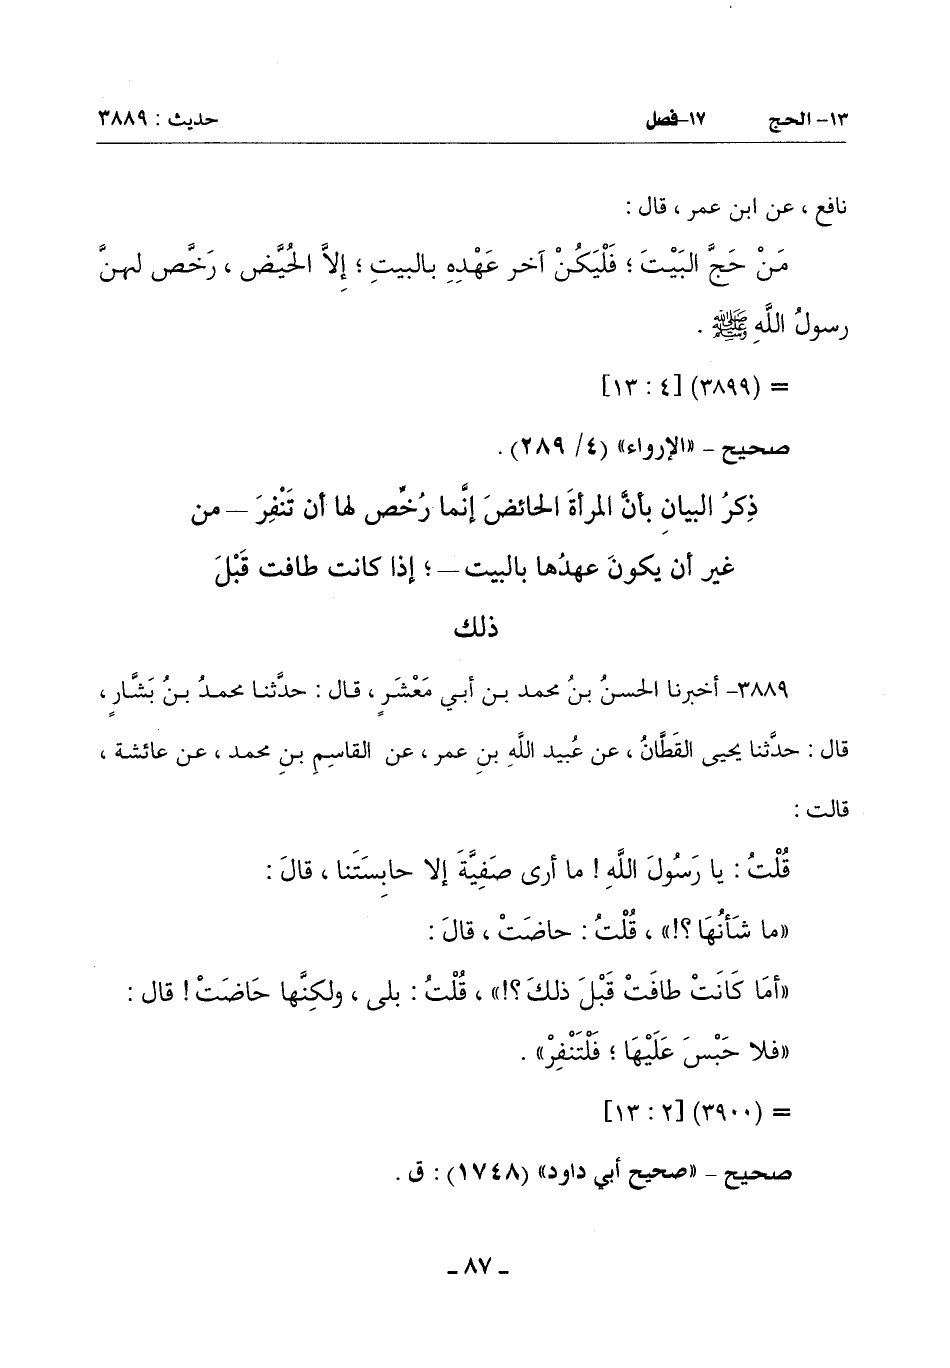 ١٣- الحج ١٧-فصل حديث : ٣٨٨٩
نافع ، عن ابن عمر ، قال :
مَنْ حَجَّ البَيْتَ ؛ فَلْيَكُنْ آخر عَهْدِهِ بالبيتِ ؛ إلاَّ الحُيَّضِ ، رَخَّص لهنَّ
رسولُ اللَّهِ ﷺ .
= (٣٨٩٩) [٤ : ١٣]
صحيح - «الإرواء» (٤/ ٢٨٩) .
ذِكرُ البيانِ بأنَّ المرأةَ الحائضَ إنَّما رُخِّص لها أن تَنْفِرَ – من
غير أن يكونَ عهدُها بالبيت – ؛ إذا كانت طافت قَبْلَ
ذلك
٣٨٨٩- أخبرنا الحسنُ بنُ محمد بن أبي مَعْشَرٍ ، قال : حدَّثنا محمدُ بنُ بَشَّارٍ ،
قال : حدَّثنا يحيى القَطَّانُ ، عن عُبيد اللَّهِ بنِ عمر ، عن القاسمِ بنِ محمد ، عن عائشة ،
قالت :
قُلْتُ : يا رَسُولَ اللَّهِ ! ما أرى صَفِيَّةَ إلا حابِسَتَنا ، قالَ :
«ما شَأنُهَا ؟!» ، قُلْتُ : حاضَتْ ، قالَ :
«أمَا كَانَتْ طافَتْ قَبْلَ ذلكَ ؟!» ، قُلْتُ : بلى ، ولكِنَّها حَاضَتْ ! قال :
«فلا حَبْسَ عَلَيْهَا ؛ فَلْتَنْفِرْ» .
= (٣٩٠٠) [٢ : ١٣]
صحيح - «صحيح أبي داود» (١٧٤٨) : ق .
ـ ٨٧ ـ